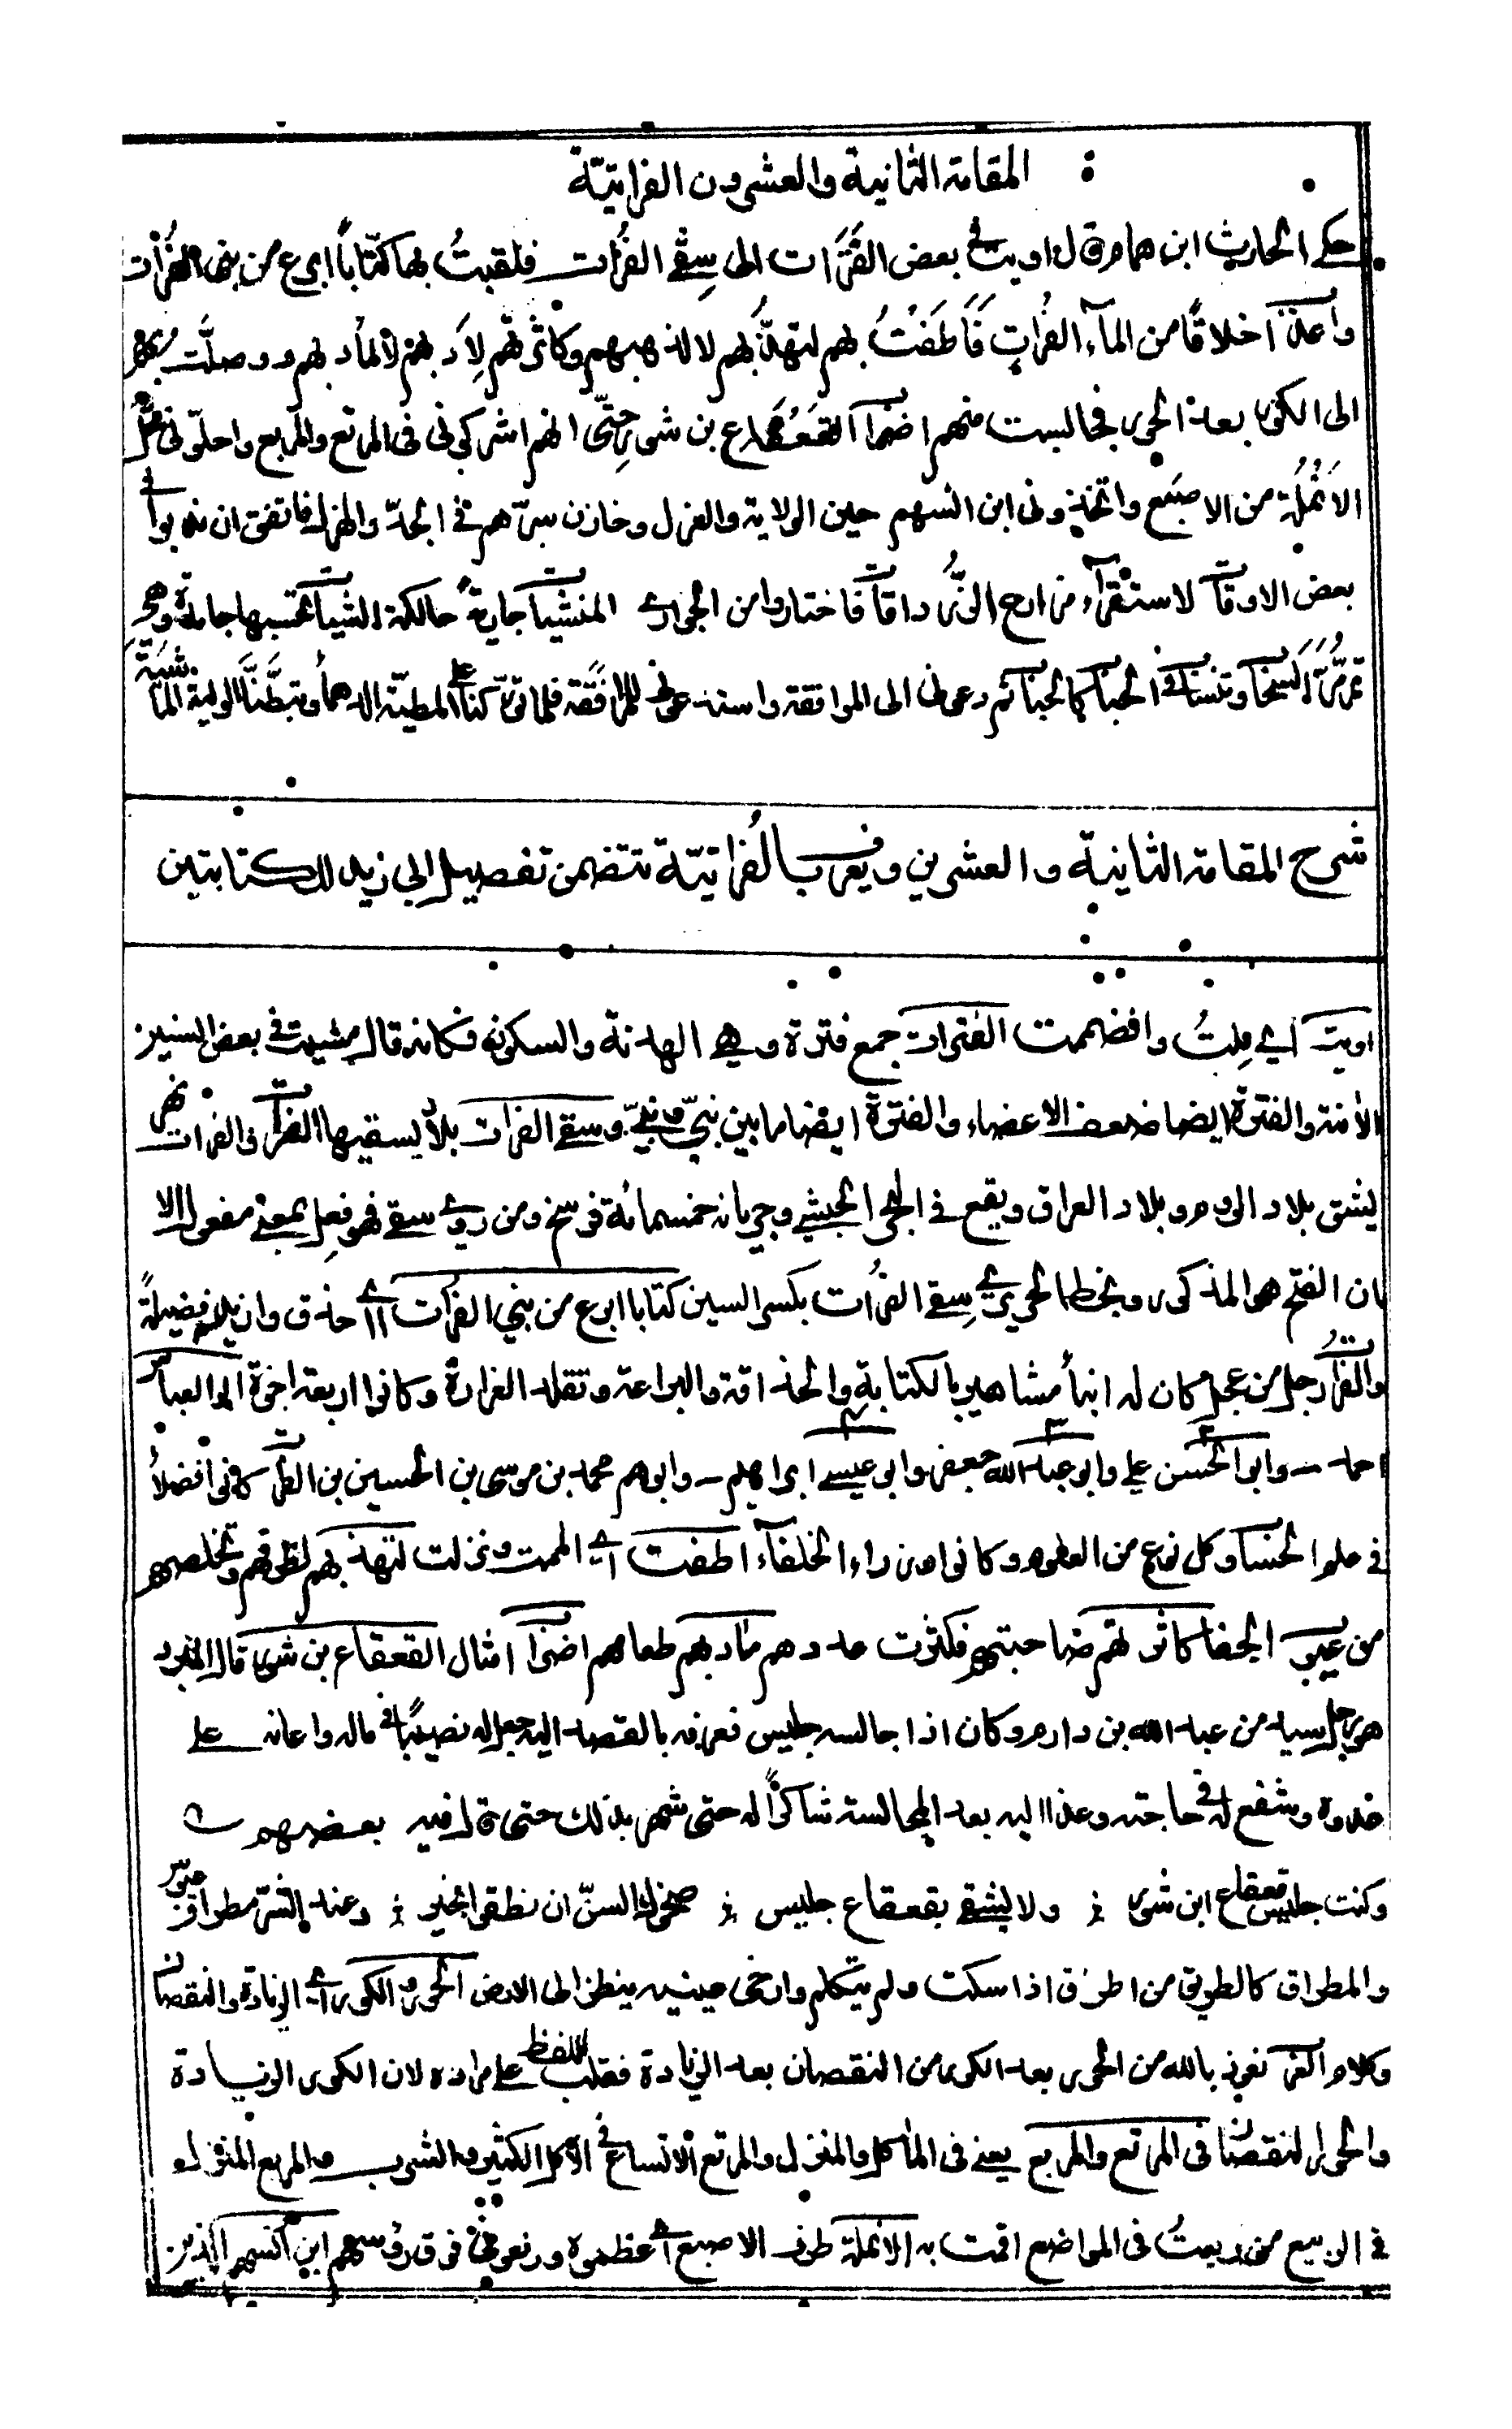 المقامة الثانية والعشرون الفراتيّة
حكى الحارث ابن همام قال اويت في بعض الفَتَرَات الى سِقْي الفُرات فلقيتُ بها كتّاباً ابرع من بنى الفُرات
واعذبَ اخلاقًا من المآء الفُراتِ فَأَطَفْتُ بهم لتهذّبهم لا لذهبهم وكاثرتهم لِأَدبهم لا لمأدبهم
الى الكور بعد الحور فجالست منهم اضرابَ القعقاع بن شور حتّى انهم اشركونى فى المرتع والمربع واحلّونى محلّ
الأنْمُلَة من الاصبَع واتخذونى ابن انسهم حين الولاية والعزل وخازن سرّهم في الجدّ والهزل فاتفق ان ندبوا في
بعض الاوقات لاستقرآء مزارع الرُّزداقات فاختاروا من الجوارى المنشآت جارية حالكة الشيات تحسبها جامدة وهى
تمرُّ مرّ السحاب وتنساب في الحباب كالحباب ثم دعونى الى الموافقة واستدعونى للمرافَقة فلما تورّكنا على المطيّة الدهماء وتبطّنّا الولية الماشية
شرح المقامة الثانية والعشرين ويعرف بالفراتيّة تتضمن تفصيل ابى زيد الكتابتين
اويت اي مِلتُ وافضممت الفترات جمع فترة وهي الهدنة والسكونة فكانه قال مشيت في بعض السنين
الأمنة والفترة ايضا ضعف الاعضاء والفترة ايضا ما بين نبيّ ونبيّ وسقي الفرات بلاد يسقيها الفرات والفرات نهر
يشق بلاد الروم وبلاد العراق ويقع في البحر الحبشي وجريانه خمسمائة فرسخ ومن روى سقي فهو فعل بمعنى مفعول الا
ان الفتح هو المذكور وبخط الحريري سِقي الفُرات بكسر السين كتابا ابرع من بنى الفرات اي احذق وازيد فضيلةً
والفرات رجل من عجل كان له ابناء مشاهير بالكتابة والحذاقة والبراعة وتقلد الوزارة وكانوا اربعة اخوة ابو العباس
احمد وابو الحسن علي وابو عبد الله جعفر وابو عيسى ابراهيم وابوهم محمد بن موسى بن الحسين بن الفرات كانوا افضلا
في علم الحساب وكل نوع من العلوم وكانوا وزراء الخلفآء اطفت اي الممت ونزلت لتهذبهم لظرفهم وتخلصهم
من عيوب الجفا كاثرتهم صاحبتهم فكثرت عددهم مادبهم طعامهم اضراب امثال القعقاع بن شور قال المبرد
هو رجل سيد من عبد الله بن دارم وكان اذا جالسه جليس فعرفه بالقصد اليه جعل له نصيبًا في ماله واعانه على
عدوه وشفع له في حاجته وغدا اليه بعد المجالسة شاكرًا له حتى شهر بذلك حتى قال فيه بعضهم
وكنت جليس قعقاع ابن شور ولا يشقى بقعقاع جليس ضحوك السنّ ان نطقوا بخير وعند الشرّ مطراق عبوس
والمطراق كالطريق من اطرق اذا سكت ولم يتكلم وارخى عينيه ينظر الى الارض الحور والكور اي الزيادة والنقصان
وكلام العرب نعوذ بالله من الحور بعد الكور من النقصان بعد الزيادة فقلب اللفظ على مراده لان الكور الزيادة
والحور النقصان فى المرتع والمربع يعنى فى الماكل والمنزل والمرتع الاتساع في الاكل الكثير والشرب والمربع المنزل
في الربيع من ربعتُ فى المواضع اقمت به الانملة طرف الاصبع اي عظموه ورفعونى فوق رؤسهم ابن انسهم الذين